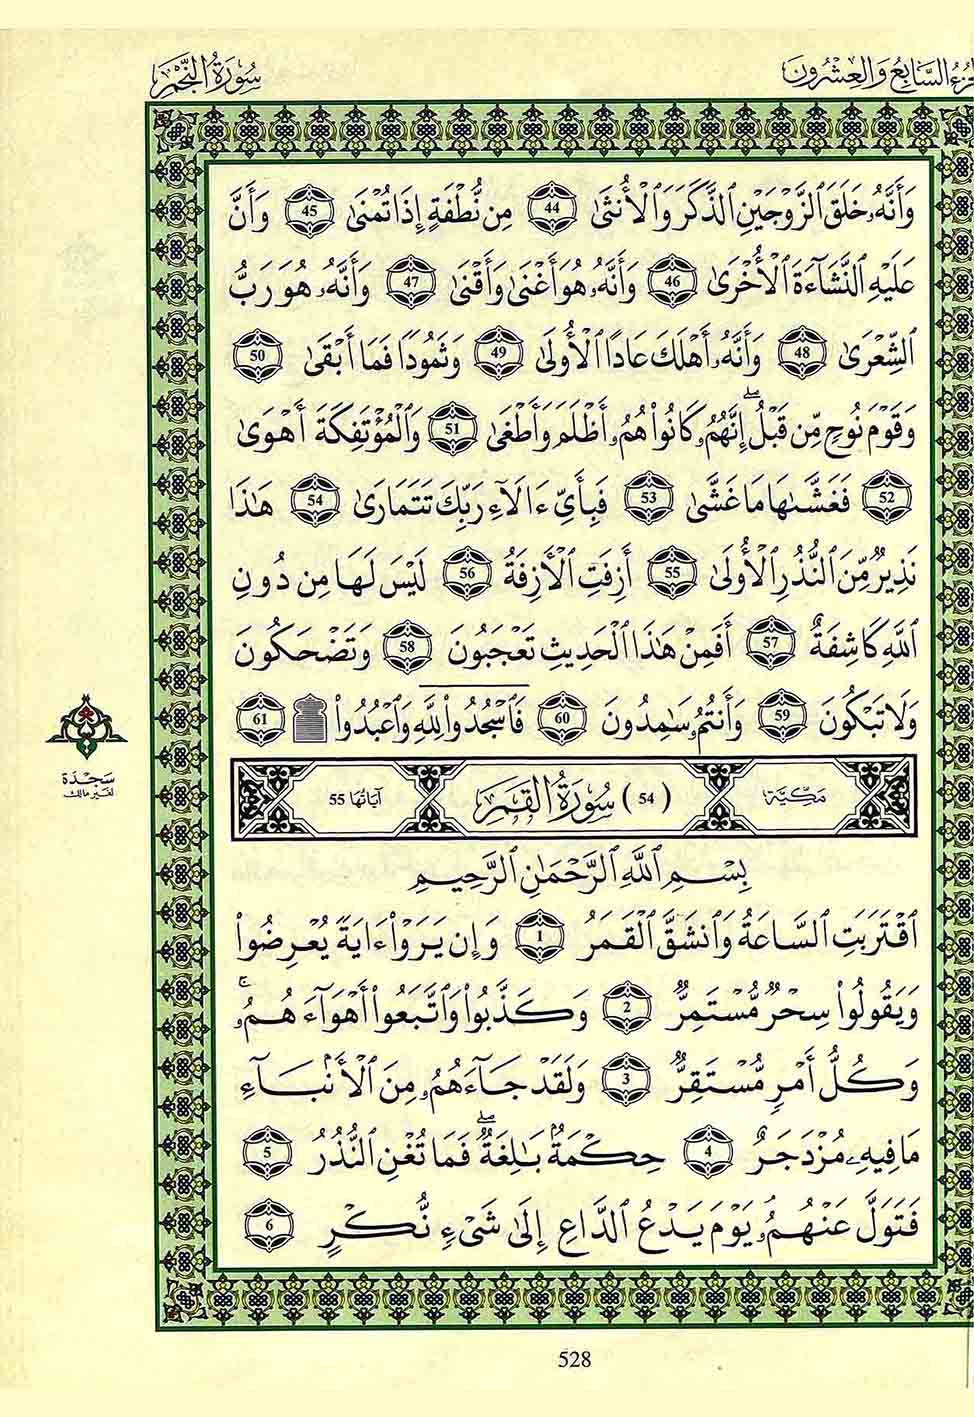 الجزء السابع والعشرون
سورة النجم
وَأَنَّهُۥ خَلَقَ ٱلزَّوْجَيْنِ ٱلذَّكَرَ وَٱلْأُنثَىٰ 44 مِن نُّطْفَةٍ إِذَا تُمْنَىٰ 45 وَأَنَّ
عَلَيْهِ ٱلنَّشَآءَةَ ٱلْأُخْرَىٰ 46 وَأَنَّهُۥ هُوَ أَغْنَىٰ وَأَقْنَىٰ 47 وَأَنَّهُۥ هُوَ رَبُّ
ٱلشِّعْرَىٰ 48 وَأَنَّهُۥ أَهْلَكَ عَادًا ٱلْأُولَىٰ 49 وَثَمُودًا فَمَا أَبْقَىٰ 50
وَقَوْمَ نُوحٍ مِّن قَبْلُ ۖ إِنَّهُمُۥ كَانُوا۟ هُمُۥ أَظْلَمَ وَأَطْغَىٰ 51 وَٱلْمُؤْتَفِكَةَ أَهْوَىٰ
52 فَغَشَّىٰهَا مَا غَشَّىٰ 53 فَبِأَيِّ ءَالَآءِ رَبِّكَ تَتَمَارَىٰ 54 هَٰذَا
نَذِيرٌ مِّنَ ٱلنُّذُرِ ٱلْأُولَىٰ 55 أَزِفَتِ ٱلْأَزِفَةُ 56 لَيْسَ لَهَا مِن دُونِ
ٱللَّهِ كَاشِفَةٌ 57 أَفَمِنْ هَٰذَا ٱلْحَدِيثِ تَعْجَبُونَ 58 وَتَضْحَكُونَ
وَلَا تَبْكُونَ 59 وَأَنتُمُۥ سَٰمِدُونَ 60 فَٱسْجُدُوا۟ لِلَّهِ وَٱعْبُدُوا۟ ۩ 61
سجدة
لغير مالك
مكية (54) سورة القمر آياتها 55
بِسْمِ ٱللَّهِ ٱلرَّحْمَٰنِ ٱلرَّحِيمِ
ٱقْتَرَبَتِ ٱلسَّاعَةُ وَٱنشَقَّ ٱلْقَمَرُ 1 وَإِن يَرَوْا۟ ءَايَةً يُعْرِضُوا۟
وَيَقُولُوا۟ سِحْرٌ مُّسْتَمِرٌّ 2 وَكَذَّبُوا۟ وَٱتَّبَعُوا۟ أَهْوَآءَهُمُۥ ۚ
وَكُلُّ أَمْرٍ مُّسْتَقِرٌّ 3 وَلَقَدْ جَآءَهُمُۥ مِنَ ٱلْأَنۢبَآءِ
مَا فِيهِۦ مُزْدَجَرٌ 4 حِكْمَةٌۢ بَٰلِغَةٌ ۖ فَمَا تُغْنِ ٱلنُّذُرُ 5
فَتَوَلَّ عَنْهُمُۥ يَوْمَ يَدْعُ ٱلدَّاعِ إِلَىٰ شَيْءٍ نُّكْرٍ 6
528